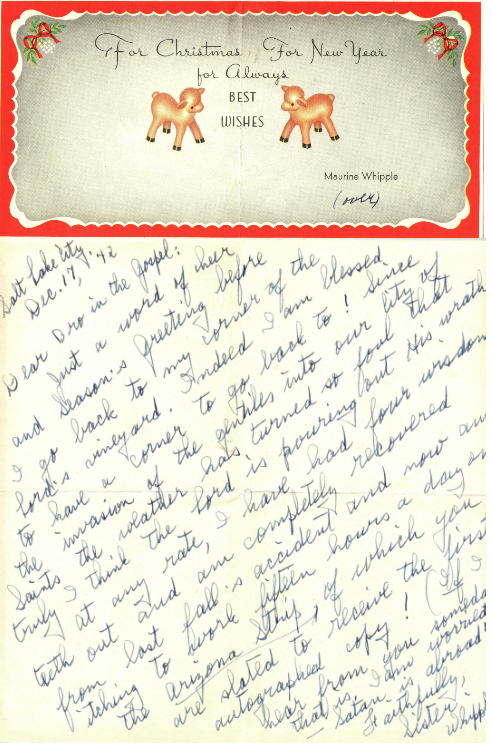 For Christmas For New Year
for Always
BEST
WISHES
Maurine Whipple
(over)
Salt Lake City,
Dec. 17, '42
Dear Bro in the Gospel:
Just a word of cheer
and Season's Greeting before
I go back to my corner of the
Lord's vineyard. Indeed I am blessed
to have a corner to go back to! Since
the invasion of the gentiles into our city of
Saints the weather has turned so foul that
truly I think the Lord is pouring out His wrath
At any rate, I have had four wisdom
teeth out and am completely recovered
from last fall's accident and now am
itching to work fifteen hours a day on
the Arizona Strip, of which you
are slated to receive the first
autographed copy! (If I
hear from you someday
that is, I am worried
— Satan is abroad!
Faithfully,
Sister
Whipple